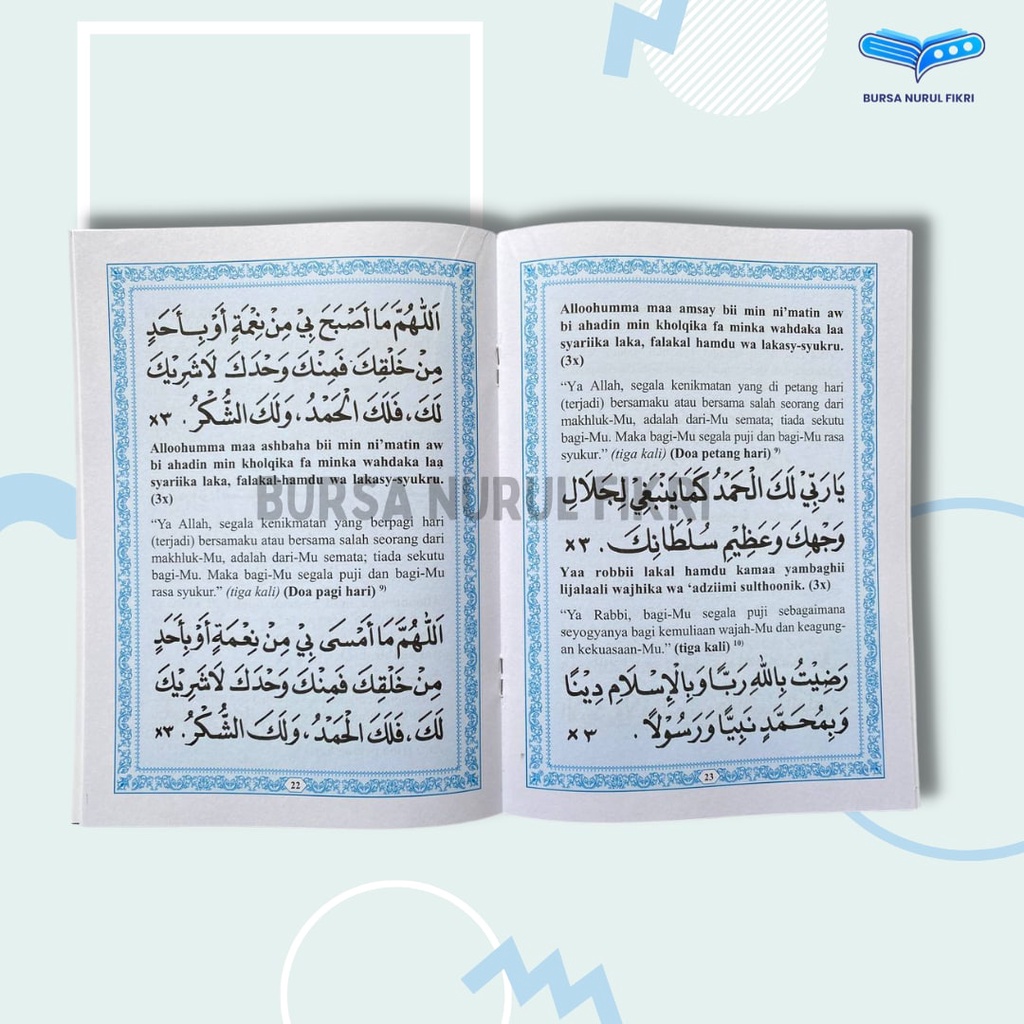 BURSA NURUL FIKRI
اَللّٰهُمَّ مَا اَصْبَحَ بِيْ مِنْ نِعْمَةٍ أَوْ بِأَحَدٍ
مِنْ خَلْقِكَ فَمِنْكَ وَحْدَكَ لَاشَرِيْكَ
لَكَ، فَلَكَ الْحَمْدُ، وَلَكَ الشُّكْرُ. ٣×
Alloohumma maa ashbaha bii min ni’matin aw
bi ahadin min kholqika fa minka wahdaka laa
syariika laka, falakal-hamdu wa lakasy-syukru.
(3x)
“Ya Allah, segala kenikmatan yang berpagi hari
(terjadi) bersamaku atau bersama salah seorang dari
makhluk-Mu, adalah dari-Mu semata; tiada sekutu
bagi-Mu. Maka bagi-Mu segala puji dan bagi-Mu
rasa syukur.” (tiga kali) (Doa pagi hari) ⁹⁾
اَللّٰهُمَّ مَا أَمْسَى بِيْ مِنْ نِعْمَةٍ أَوْ بِأَحَدٍ
مِنْ خَلْقِكَ فَمِنْكَ وَحْدَكَ لَاشَرِيْكَ
لَكَ، فَلَكَ الْحَمْدُ، وَلَكَ الشُّكْرُ. ٣×
22
Alloohumma maa amsay bii min ni’matin aw
bi ahadin min kholqika fa minka wahdaka laa
syariika laka, falakal hamdu wa lakasy-syukru.
(3x)
“Ya Allah, segala kenikmatan yang di petang hari
(terjadi) bersamaku atau bersama salah seorang dari
makhluk-Mu, adalah dari-Mu semata; tiada sekutu
bagi-Mu. Maka bagi-Mu segala puji dan bagi-Mu rasa
syukur.” (tiga kali) (Doa petang hari) ⁹⁾
يَا رَبِّيْ لَكَ الْحَمْدُ كَمَا يَنْبَغِيْ لِجَلَالِ
وَجْهِكَ وَعَظِيْمِ سُلْطَانِكَ. ٣×
Yaa robbii lakal hamdu kamaa yambaghii
lijalaali wajhika wa ‘adziimi sulthoonik. (3x)
“Ya Rabbi, bagi-Mu segala puji sebagaimana
seyogyanya bagi kemuliaan wajah-Mu dan keagung-
an kekuasaan-Mu.” (tiga kali) ¹⁰⁾
رَضِيْتُ بِاللهِ رَبًّا وَبِالْإِسْلَامِ دِيْنًا
وَبِمُحَمَّدٍ نَبِيًّا وَرَسُوْلًا. ٣×
23
BURSA NURUL FIKRI